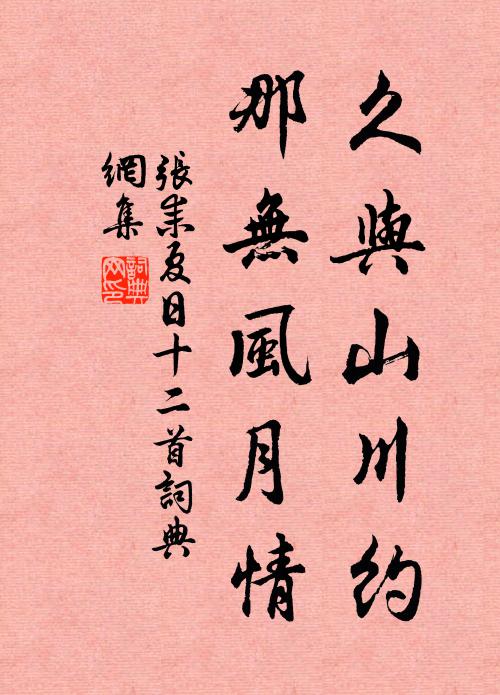 久與山川約
那無風月情
張耒夏日十二首詞典
網集
詞典
網印